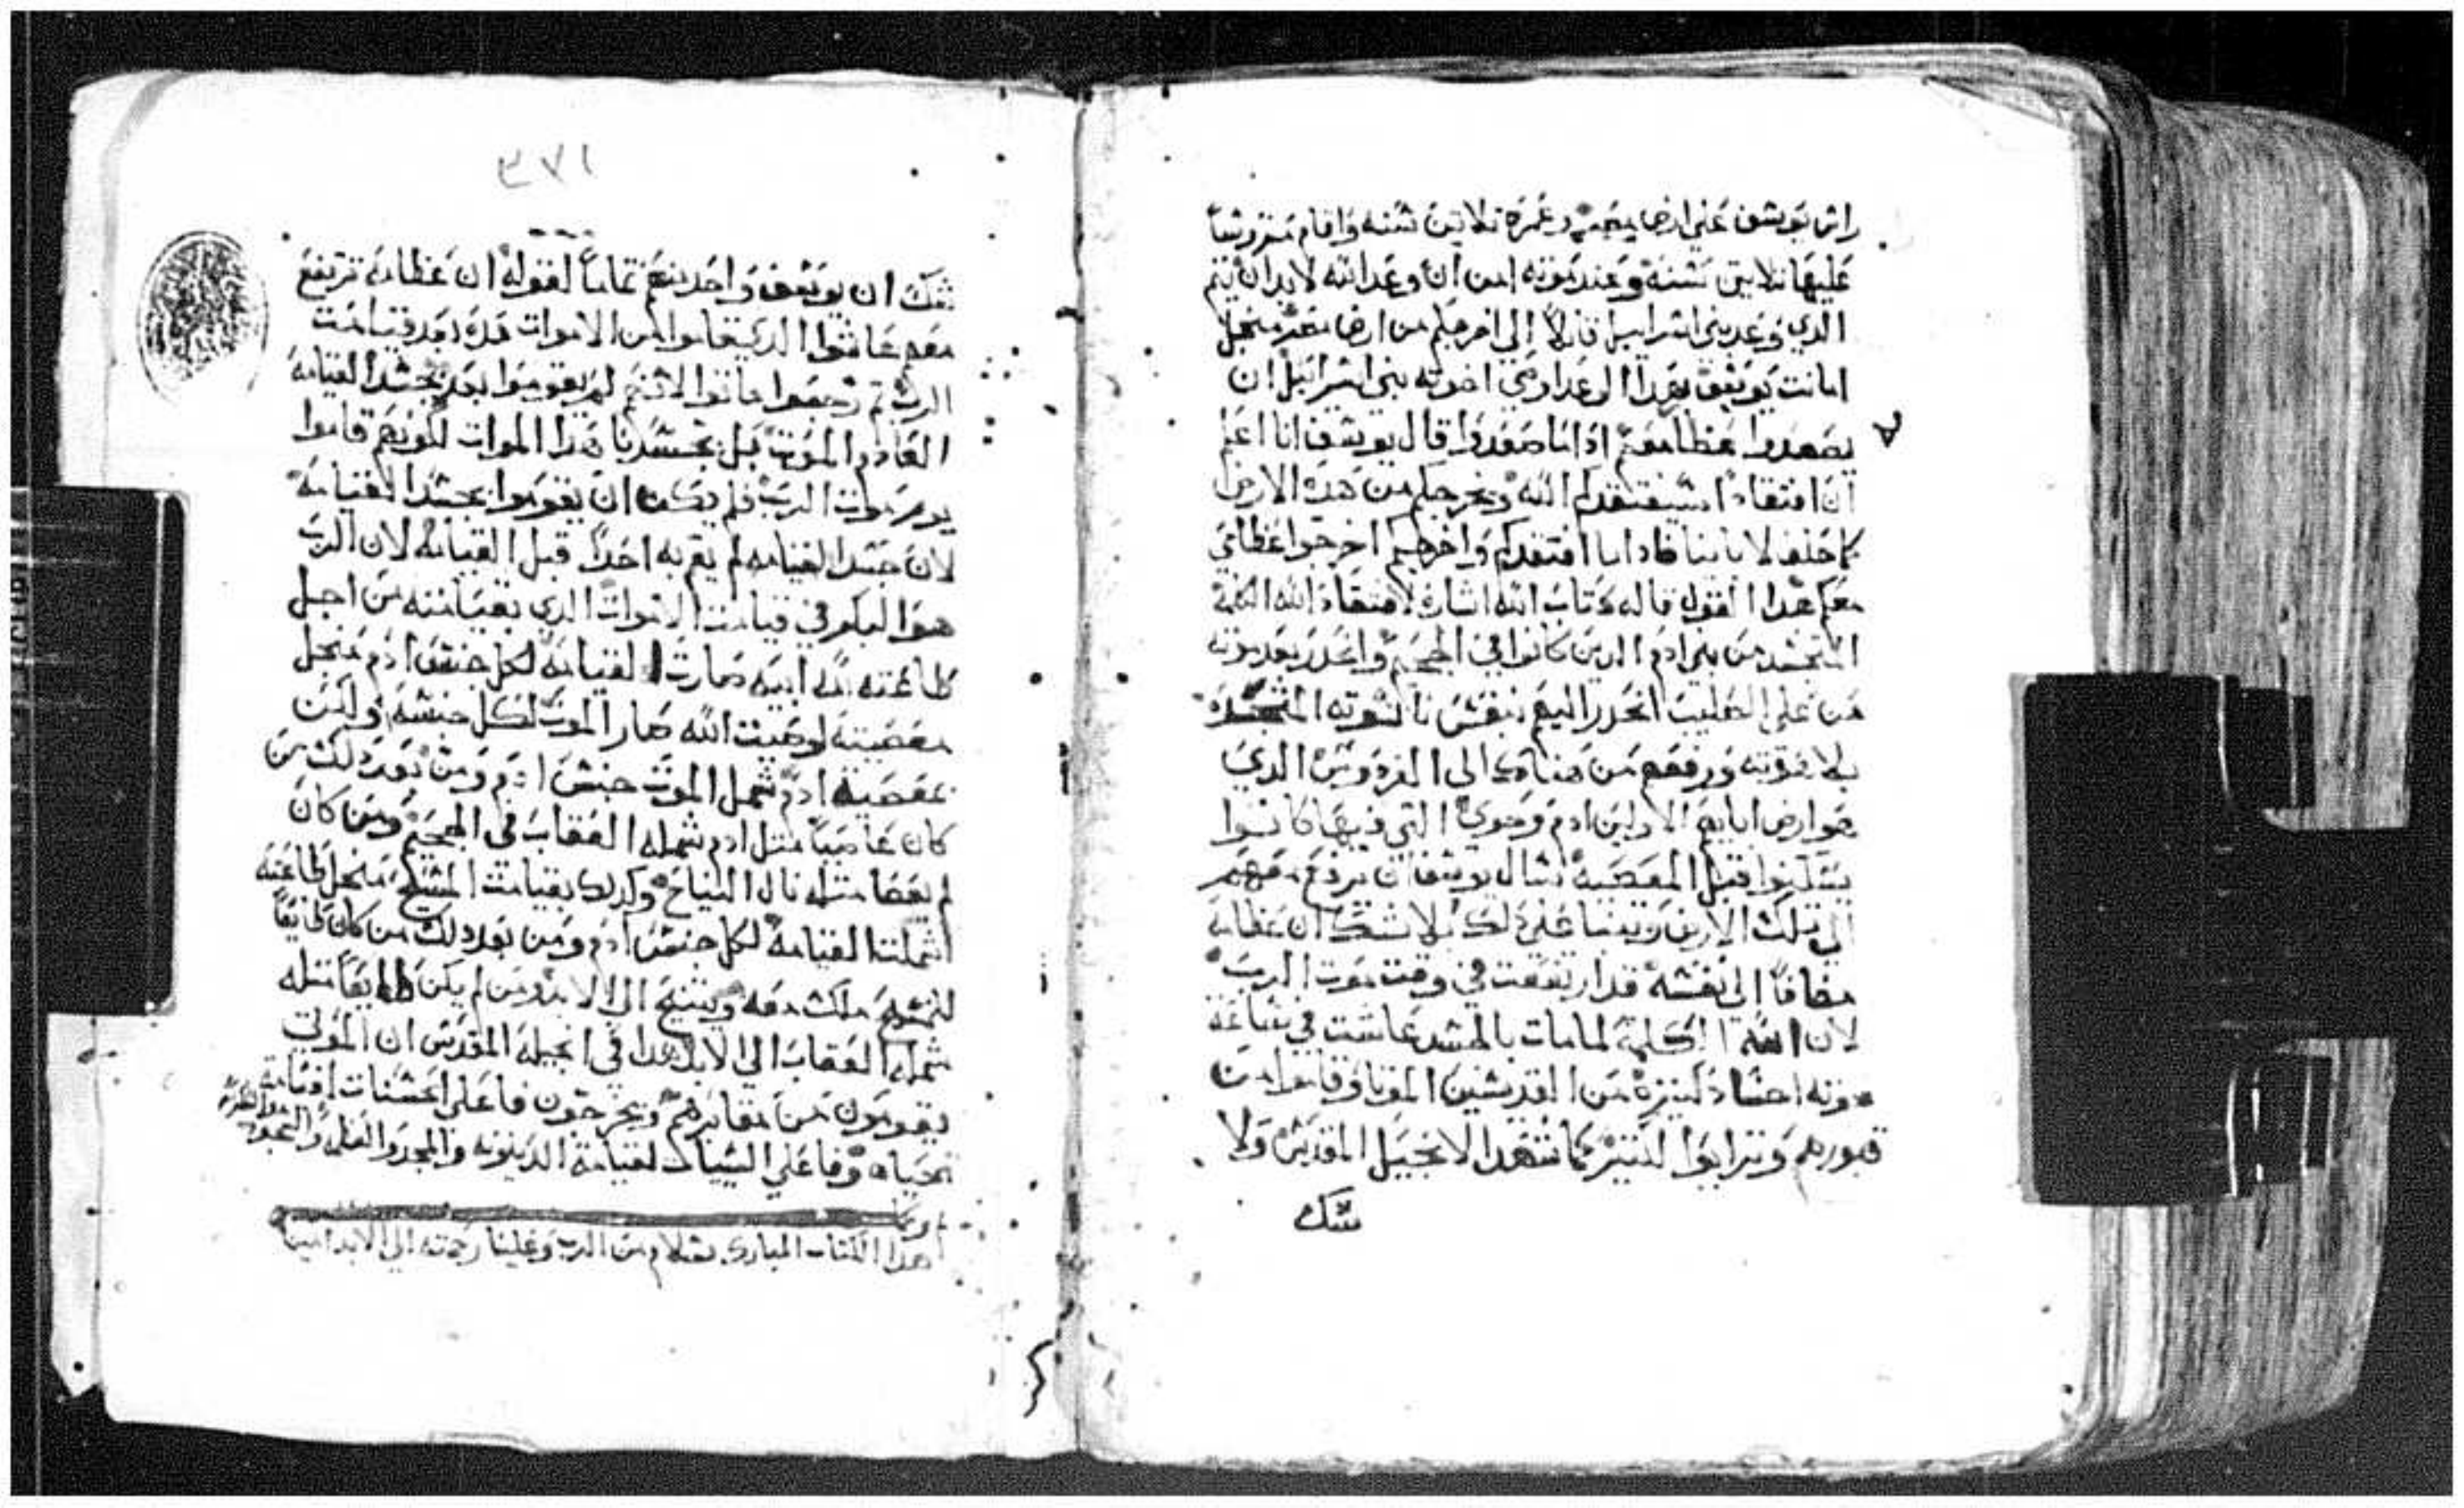 راس يوسف على ارض مصر وعمره ثلاثين سنه واقام
عليها ثمانين سنه وعند موته امن ان وعد الله لابد ان يتم
الدي وعد بني اسراييل قايلاً اني اخرجكم من ارض مصر منجل
امانت يوسف بهدا الوعد اوصى اخوته بني اسرائيل ان
يصعدوا عظامه معهم ادا ما صعدوا قال يوسف انا اعلم
ان افتقاداً سيفتقدكم الله ويخرجكم من هده الارض
كما حلف لابائنا فادا ما افتقدكم واخرجكم اخرجوا عظامي
معكم هدا القول قاله كتاب الله اشاره لافتقاد الله الكلمة
المتجسد من بني ادم الدين كانوا في الجحيم وانحدر بعد موته
من على الصليب انحدر اليهم بنفس ناسوته المتحده
بلاهوته ورفعهم من هناك الى الفردوس الدي
هو ارض ابايهم الاولين ادم وحوى التي فيها كانوا
يسكنوا قبل المعصية سال يوسف ان ترفع معهم
الى تلك الارض وبينا على دلك بلا شك ان عظامه
مضافاً الى نفسه قد ارتفعت في وقت موت الرب
لان الله الكلمة لما مات بالجسد عاشت في ساعة
موته اجساد كثيره من القديسين الموتا وقاموا من
قبورهم وترايوا لكثير كما شهد الانجيل المقدس ولا
شك
٣٧١
شك ان يوسف واحد منهم تماماً لقوله ان عظامه ترتفع
معهم عاشوا الدين قاموا من الاموات مده بعد قيامت
الرب ثم رجعوا ماتوا لانهم لم يقوموا بعد بجسد القيامة
العادم الموت بل بجسدنا هدا الموات لكونهم قاموا
يوم موت الرب فلم يمكن ان يقوموا بجسد القيامة
لان جسد القيامه لم يقم به احداً قبل القيامه لان الرب
هوا البكر في قيامت الاموات الدي بقيامته من اجل
طاعته لابيه صارت القيامة لكل جنس ادم منجل
معصيته لوصيت الله صار الموت لكل جنسه ولكن
بمعصية ادم شمل الموت جنس ادم ومن بعد دلك من
كان عاصياً متل ادم شمله العقاب في الجحيم ومن كان
لم يعصا متله نال النياح وكدلك بقيامت المسيح منجل طاعته
اشملت القيامة لكل جنس ادم ومن بعد دلك من كان طايعاً
للمسيح ملك معه ويتنيح الى الابد ومن لم يكن طايعاً متله
شمله العقاب الى الابد هدا في انجيله المقدس ان الموتى
يقومون من مقابرهم ويخرجون فاعلي الحسنات لقيامة
الحياه وفاعلي السيات لقيامة الدينونه والمجد والعز والسجود
هدا الكتاب المبارك بسلام من الرب وعلينا رحمته الى الابد امين